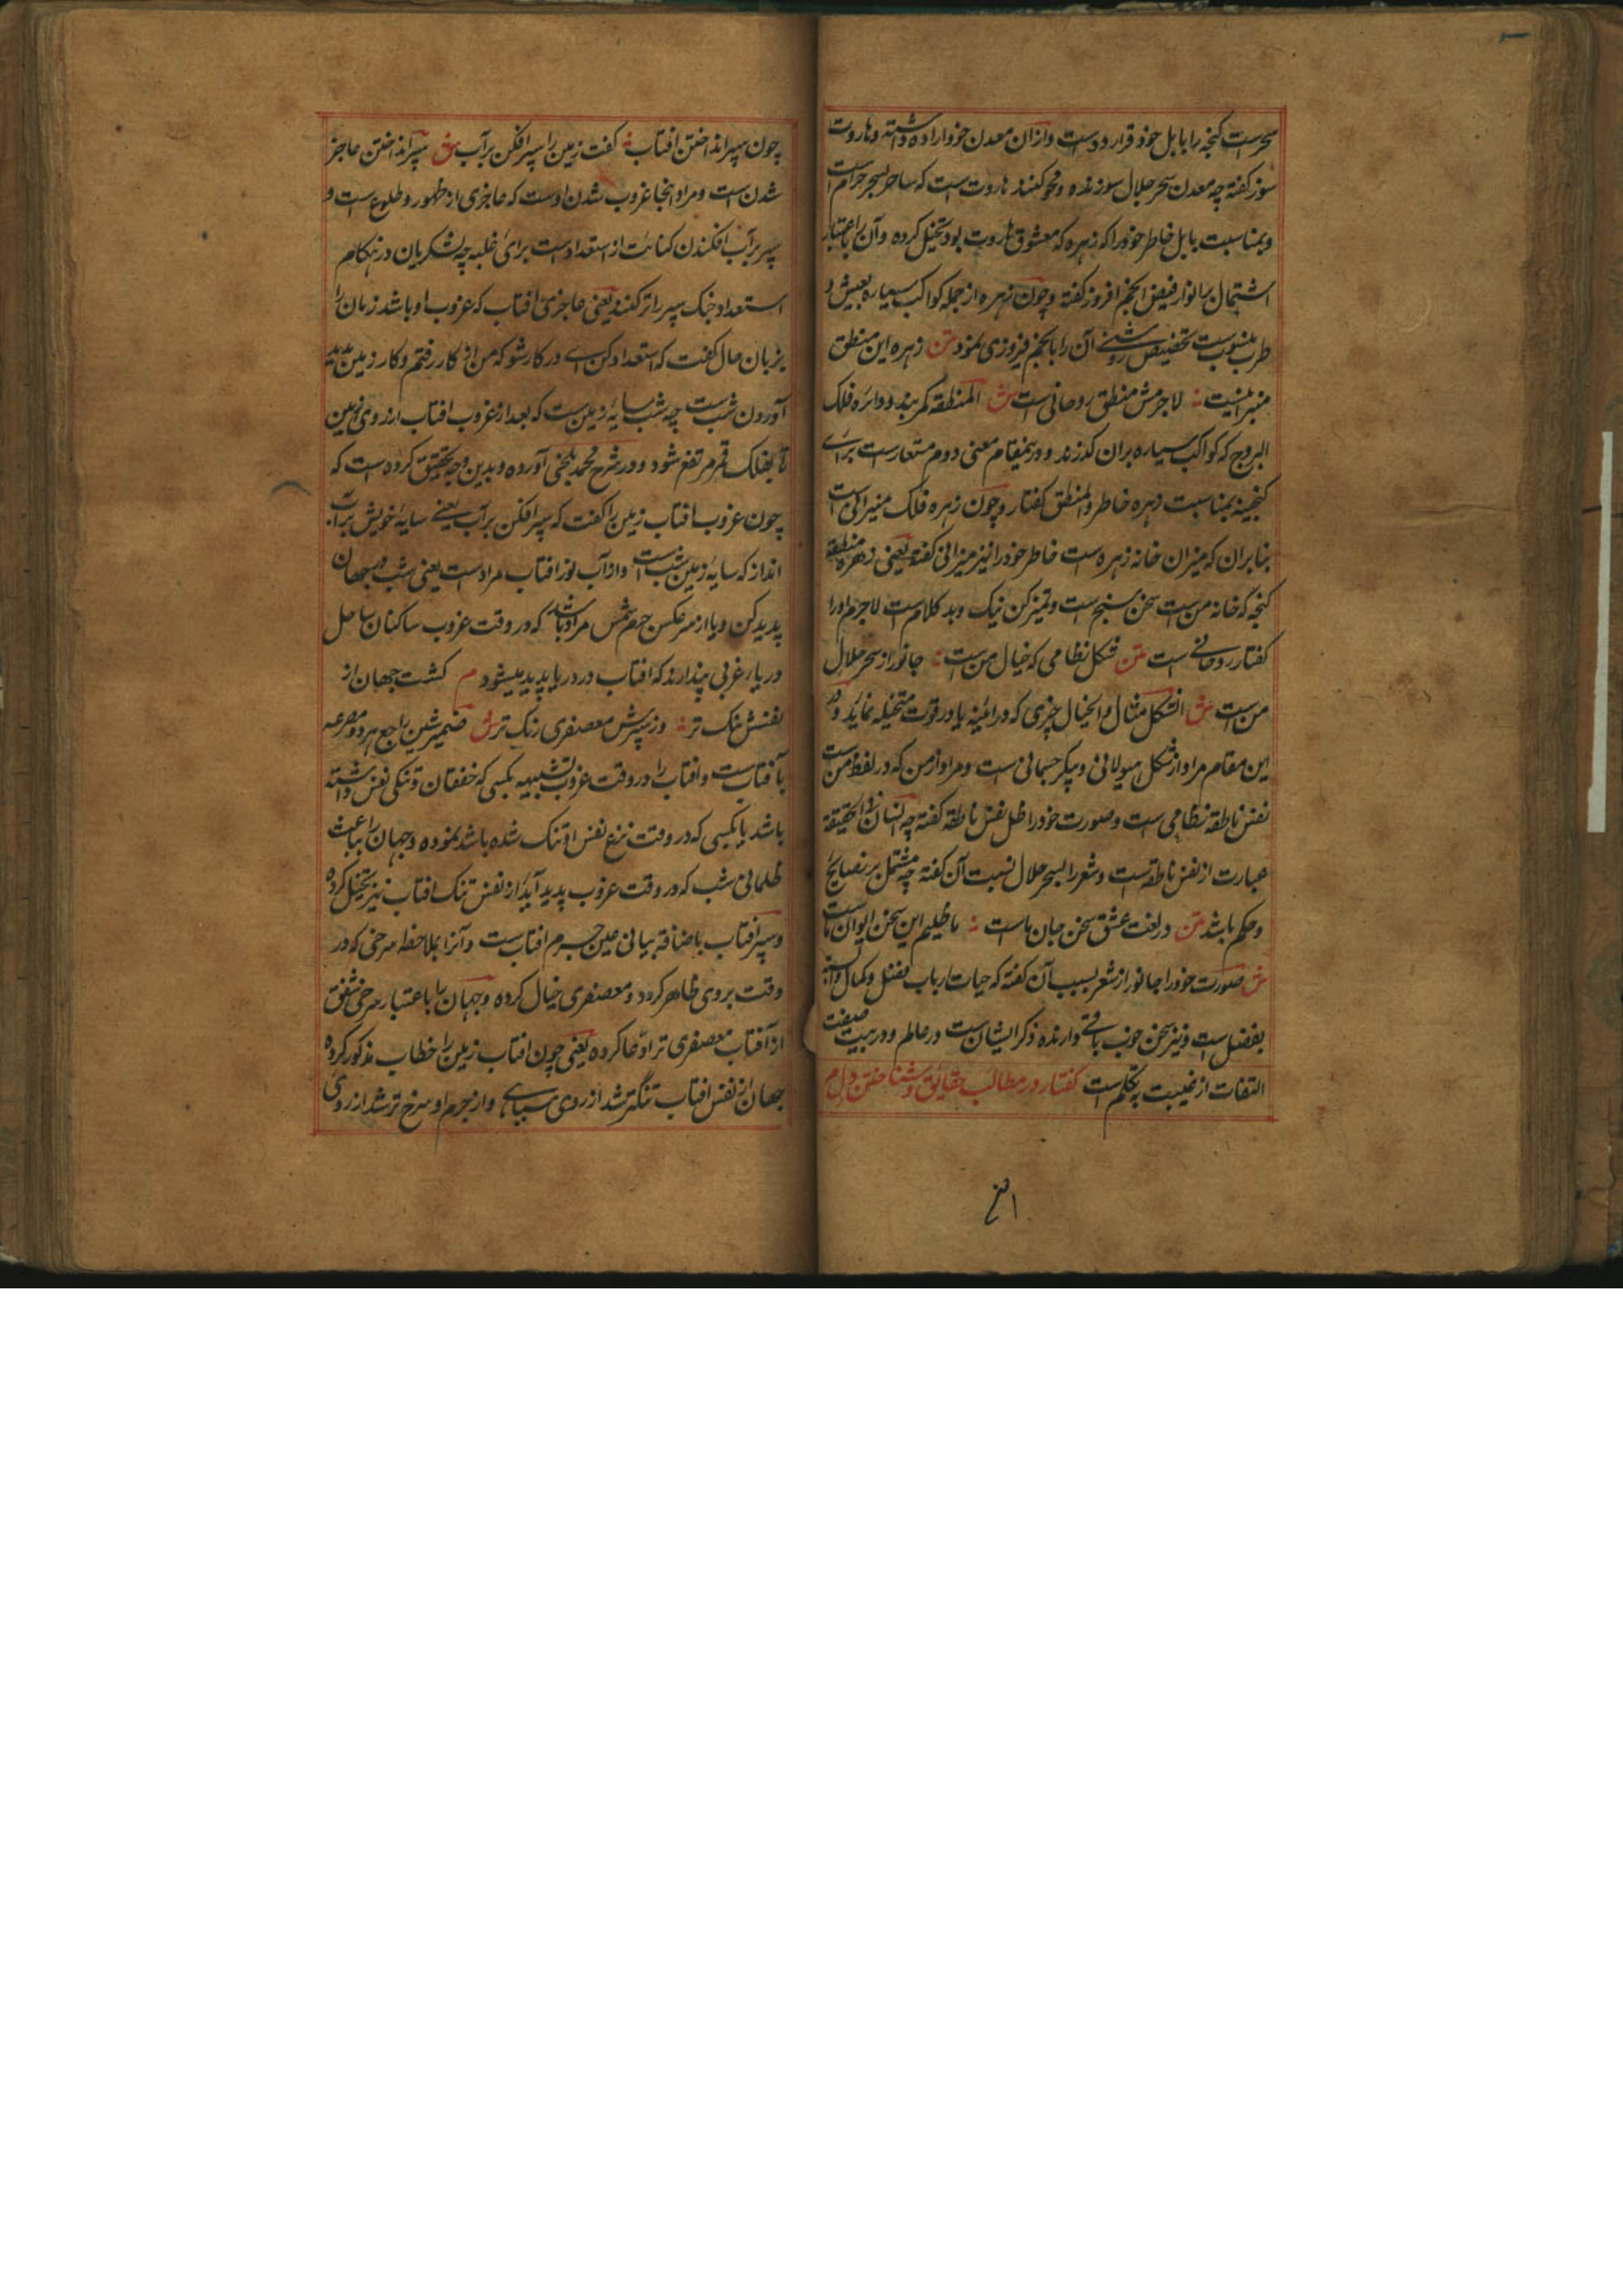 سحرست کنجه را بابل خود قرار دادست وازان معدن خود اراده داشته و هاروت
سوز کفته چه معدن سحر حلال سوزنده و محو کننده هاروت ست که ساحر بسحر حرام است
و بمناسبت بابل خاطر خود را که زهره که معشوق هاروت بود تخیل کرده و آن را باعتبار
اشتمال بر انوار فیض انجم افروز کفته و چون زهره از جمله کواکب سیاره بعیش و
طرب منسوب ست تخصیص روشنی آن را بانجم فروزی نمود متن زهره این منطق
میزانیست لاجرمش منطق روحانی است ش المنطقه کمربند و دائره فلک
البروج که کواکب سیاره بران کذرند و درینمقام معنی دوم مستعارست برای
کنجینه بمناسبت زهره خاطر و المنطق کفتار و چون زهره فلک میزانی است
بنابران که میزان خانه زهره است خاطر خود را نیز میزانی کفته یعنی زهره منطقه
کنجه که خانه من ست سخن سنج است و تمیز کن نیک و بد کلام ست لاجرم او را
کفتار روحانی است متن شکل نظامی که خیال من ست جانور از سحر حلال
من ست ش الشکل مثال و الخیال چیزی که در ائینه یا در قوت متخیله نماید و در
این مقام مراد از شکل هیولانی و پیکر جسمانی ست و مراد از من که در لفظ من ست
نفس ناطقه نظامی ست و صورت خود را ظل نفس ناطقه کفته چه انسان فی الحقیقة
عبارت از نفس ناطقه است و شعر را بسحر حلال نسبت آن کفته چه مشتمل بر نصایح
و حکم باشد متن در لغت عشق سخن جان ماست ما طلیم این سخن ایوان ماست
ش صورت خود را جانور از شعر بسبب آن کفته که حیات ارباب فضل و کمال
بفضل ست و نیز سخن خوب باقی دارنده ذکر ایشان ست در عالم و در بیت صیغت
التفات از غیبت به تکلم است کفتار در مطالب حقایق و شناختن دل م
چون سپر انداختن افتاب کفت زمین را سپر افکن بر آب ش سپر انداختن عاجز
شدن ست و مراد اینجا غروب شدن اوست که عاجزی از ظهور و طلوع ست و
سپر بر آب افکندن کنایت از استعدادست برای غلبه چه لشکریان در هنکام
استعداد جنک سپر را تر کنند یعنی عاجزی افتاب که غروب او باشد زمان را
بزبان حال کفت که استعداد کن ای در کار شو که من از کار رفتم و کار زمین پدید
آوردن شب ست چه شب سایه زمین ست که بعد از غروب افتاب از روی زمین
تا بفلک قمر مرتفع شود و در شرح محمد بلخی آورده و بدین وجه تحقیق کرده است که
چون غروب افتاب زمین را کفت که سپر افکن بر آب یعنی سایه خویش بر آب
انداز که سایه زمین شب است و از آب نور افتاب مرادست یعنی شب در جهان
پدید کن و یا از سپر عکس جرم شمس مراد باشد که در وقت غروب ساکنان ساحل
دریا غربی پندارند که افتاب در دریا پدید میشود م کشت جهان از
نفسش تنک تر وز سپرش معصفری رنک تر ش ضمیر شین راجع بهر دو مصرعه
بآفتاب ست و افتاب را در وقت غروب تشبیه بکسی که خفقان و تنکی نفس داشته
باشد یا بکسی که در وقت نزع نفس او تنک شده باشد نموده و جهان را بباعث
ظلمانی شب که در وقت غروب پدید آید از نفس تنک افتاب نیز تخیل کرده
و سپر افتاب باضافة بیانی عین جرم افتاب ست و آنرا بملاحظه سرخی که در
وقت بروی ظاهر کردد معصفری خیال کرده و جهان را باعتبار سرخی شفق
از آفتاب معصفری تر ادعا کرده یعنی چون افتاب زمین را خطاب مذکور کرد
جهان از نفس افتاب تنکتر شد از روی سیاهی و از جرم او سرخ تر شد از روی